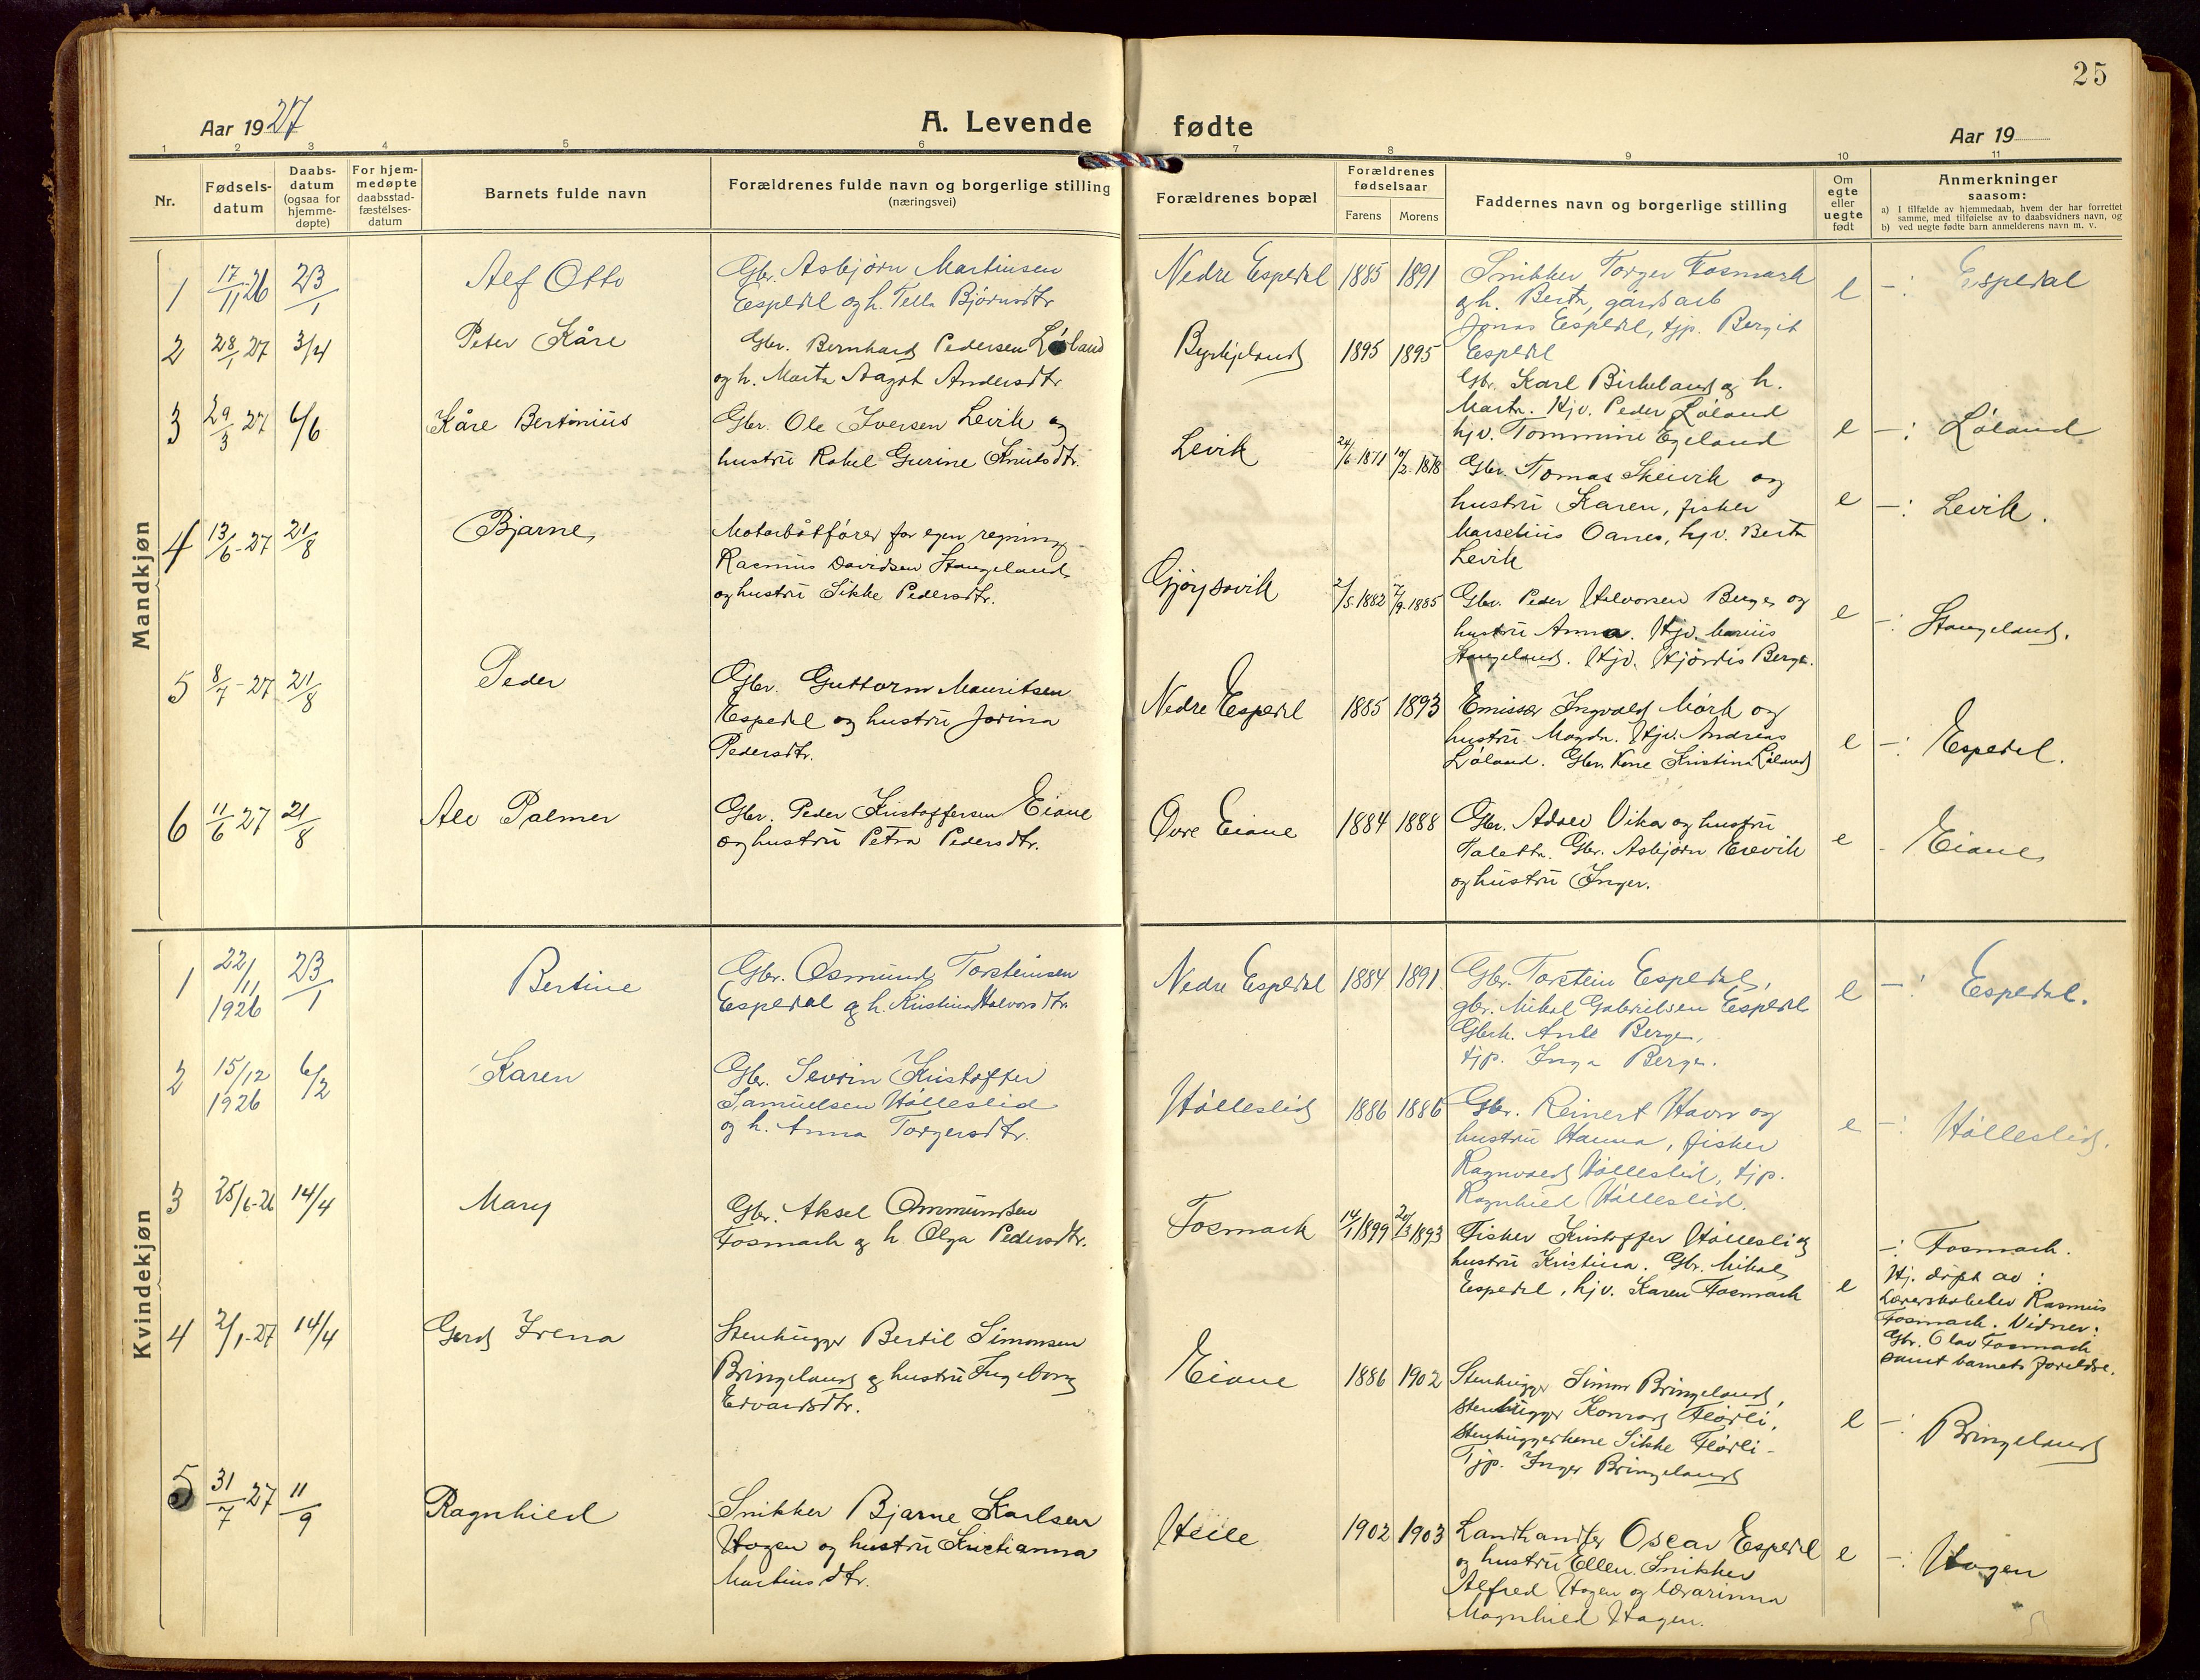 25
Aar 1927
A. Levende
fødte
Aar 19
1 2 3 4 5 6 7 8 9 10 11
Nr.
Fødsels-
datum
Daabs-
datum
(ogsaa for
hjemme-
døpte)
For hjem-
medøpte
daabsstad-
fæstelses-
datum
Barnets fulde navn
Forældrenes fulde navn og borgerlige stilling
(næringsvei)
Forældrenes bopæl
Forældrenes
fødselsaar
Farens
Morens
Faddernes navn og borgerlige stilling
Om
egte
eller
uegte
født
Anmerkninger
saasom:
a) I tilfælde av hjemmedaab, hvem der har forrettet
samme, med tilføielse av to daabsvidners navn, og
b) ved uegte fødte barn anmelderens navn m. v.
Mandkjøn
1 17/11 26 23/1 Alf Otto
Gbr. Asbjørn Martinsen
Espedal og h. Tella Bjørnsdtr
Nedre Espedal 1885 1891
Snikker Torger Fosmark
og h. Berta, gårdsarb
Jonas Espedal, tjp. Bergit
Espedal
e -:- Espedal
2 28/1 27 3/4 Peter Kåre
Gbr. Bernhard Pedersen Løland
og h. Marta Aagot Andersdtr
Byrkjeland 1895 1895
Gbr. Karl Birkeland og h.
Marta. Hjv. Peder Løland
hjv. Tommine Egeland
e -:- Løland
3 29/3 27 6/6 Kåre Bertinius
Gbr. Ole Iversen Levik og
hustru Rakel Gurine Knutsdtr.
Levik 24/6-1871 10/2-1878
Gbr. Tomas Skeivik og
hustru Karen, fisker
Marselius Oanes, hjv. Berta
Levik
e -:- Levik.
4 13/6-27 21/8 Bjarne
Motorbåtfører for egen regning
Rasmus Davidsen Stangeland
og hustru Sikke Pedersdtr.
Gjøysovik 2/5-1882 7/9-1885
Gbr. Peder Halvorsen Berge og
hustru Anna. Hjv. Marius
Stangeland. Hjv. Hjørdis Berge.
e -:- Stangeland.
5 8/7-27 21/8 Peder
Gbr. Guttorm Mauritsen
Espedal og hustru Jorina
Pedersdtr.
Nedre Espedal 1885 1893
Emissær Ingvald Mørk og
hustru Magda. Hjv. Andreas
Løland. Gbr. Kone Kristina Løland
e -:- Espedal.
6 11/6 27 21/8 Alv Palmer
Gbr. Peder Kristoffersen Eiane
og hustru Petra Pedersdtr.
Øvre Eiane 1884 1888
Gbr. Adolv Vika og hustru
Taletta. Gbr. Asbjørn Erevik
og hustru Inger.
e - Eiane
Kvindekjøn
1 22/11 1926 23/1 Bertine
Gbr. Osmund Torsteinsen
Espedal og h. Kristina Halvorsdtr.
Nedre Espedal 1884 1891
Gbr. Torstein Espedal,
gbr. Mikal Gabrielsen Espedal
Gbrk. Anle Berge,
tjp. Inga Berge.
e -:- Espedal.
2 15/12 1926 6/2 Karen
Gbr. Sevrin Kristoffer
Samuelsen Hålleslid
og h. Anna Torgersdtr.
Hålleslid 1886 1886
Gbr. Reinert Havn og
hustru Hanna, fisker
Ragnvald Hålleslid, tjp.
Ragnhild Hålleslid.
e -:- Hålleslid.
3 25/6-26 14/4 Mary
Gbr. Aksel Ommundsen
Fosmark og h. Olga Pedersdtr.
Fosmark 14/1 1899 20/3 1893
Fisker Kristoffer Hålleslid og
hustru Kristina. Gbr. Mikal
Espedal, hjv. Karen Fosmark
e -:- Fosmark.
Hj. døpt av:
Lærerskolelev Rasmus
Fosmark. Vidner:
Gbr. Olav Fosmark
samt barnets foreldre.
4 2/1-27 14/4 Gerd Irena
Stenhugger Bertil Simonsen
Bringeland og hustru Ingeborg
Edvardsdtr.
Eiane 1886 1902
Stenhugger Simon Bringeland,
Stenhugger Konrad Flørli,
Stenhuggerkone Sikke Flørli-
Tjp. Inger Bringeland
e -:- Bringeland
5 31/7 27 11/9 Ragnhild
Snikker Bjarne Karlsen
Hagen og hustru Kristianna
Martinsdtr.
Helle 1902 1903
Landhandler Oscar Espedal
og hustru Ellen. Snikker
Alfred Hagen og lærarinna
Magnhild Hagen.
e -:- Hagen